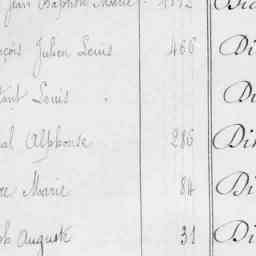 Jean Baptiste Marie 1112 Di
çois Julien Louis 466 Di
tant Louis Di
al Alphonse 286 Di
re Marie 84 Di
ph Auguste 31 Di